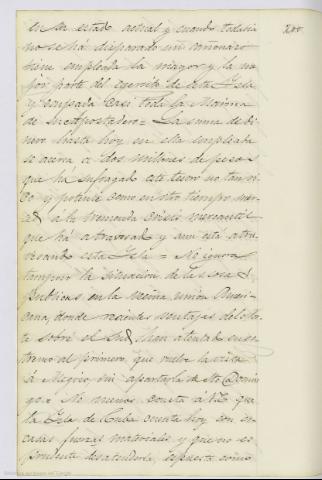 200.
en su estado actual y cuando todavia
no se há disparado un cañonazo
tiene empleada la mayor y la me
jor parte del ejercito de esta Isla
y ocupada casi toda la Marina
de su Apostadero = La suma de di
nero hasta hoy en ella empleada
se acerca a dos millones de pesos
que há sufragado este tesoro no tan ri
co y potente como en otro tiempo mer
á la tremenda crisis mercantil
que há atravesado y aun está atra
vesando esta Isla = Ni ignora
tampoco la situacion de las cosas
publicas en la vecina union Ameri
cana, donde recientes ventajas del Nor
te sobre el Sud, han alentado en es
tremo al primero, que vuelve la vista
á Mejico sin apartarla de Sto Domin
go = Ni menos consta á V.E. que
la Isla de Cuba cuenta hoy con es
casas fuerzas materiales y que no es
prudente desatenderla, espuesta como